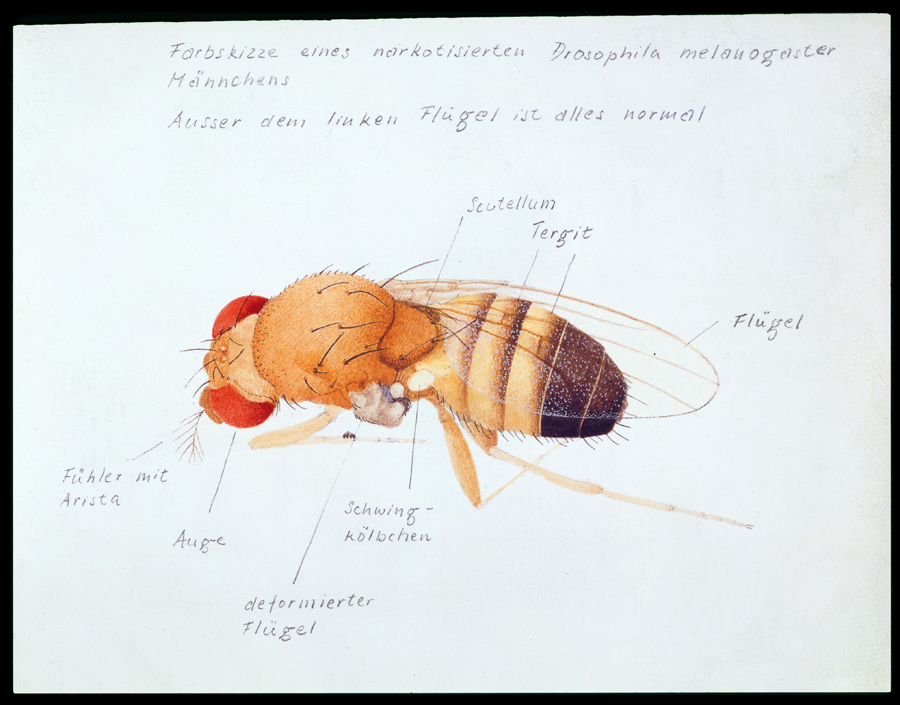 Farbskizze eines narkotisierten Drosophila melanogaster
Männchens
Ausser dem linken Flügel ist alles normal
Scutellum
Tergit
Flügel
Fühler mit
Arista
Auge
Schwing-
kölbchen
deformierter
Flügel